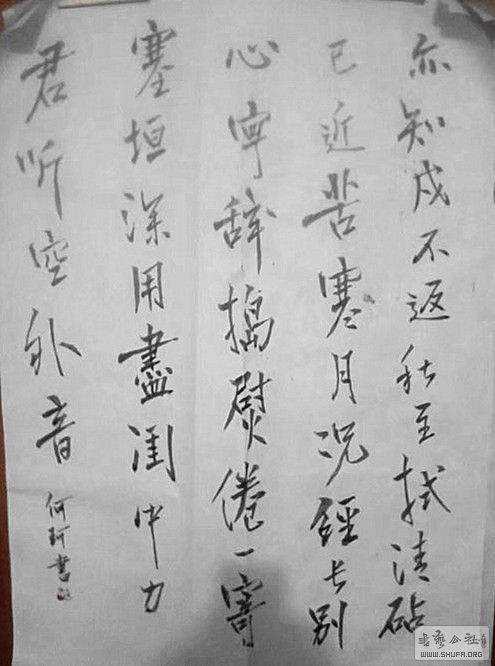 亦知戍不返秋至拭清砧
已近苦寒月况經长别
心宁辭搗熨倦一寄
塞垣深用盡闺中力
君听空外音
何珂書
書藝公社
WWW.SHUFA.ORG